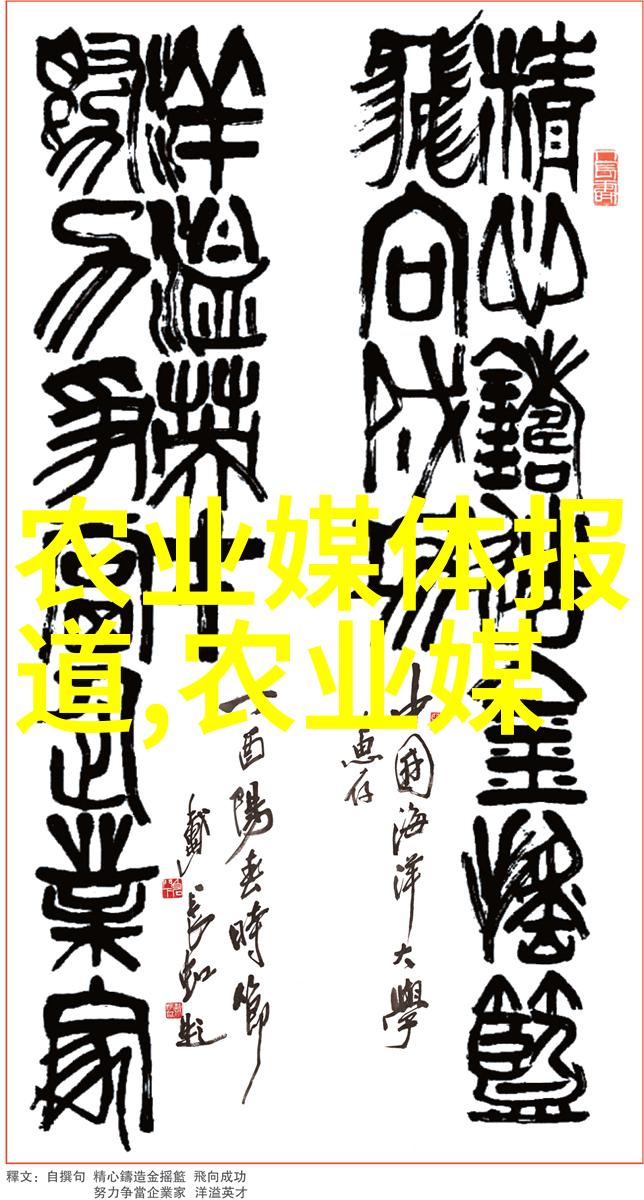 精心鑄造金摇籃
飛向成功
中國海洋大學
惠存
努力争當企業家
洋溢英才
丁酉陽春時節
戴長虹題
农业媒体报
道,农业媒
釋文：自撰句 精心鑄造金摇籃 飛向成功
努力争當企業家 洋溢英才